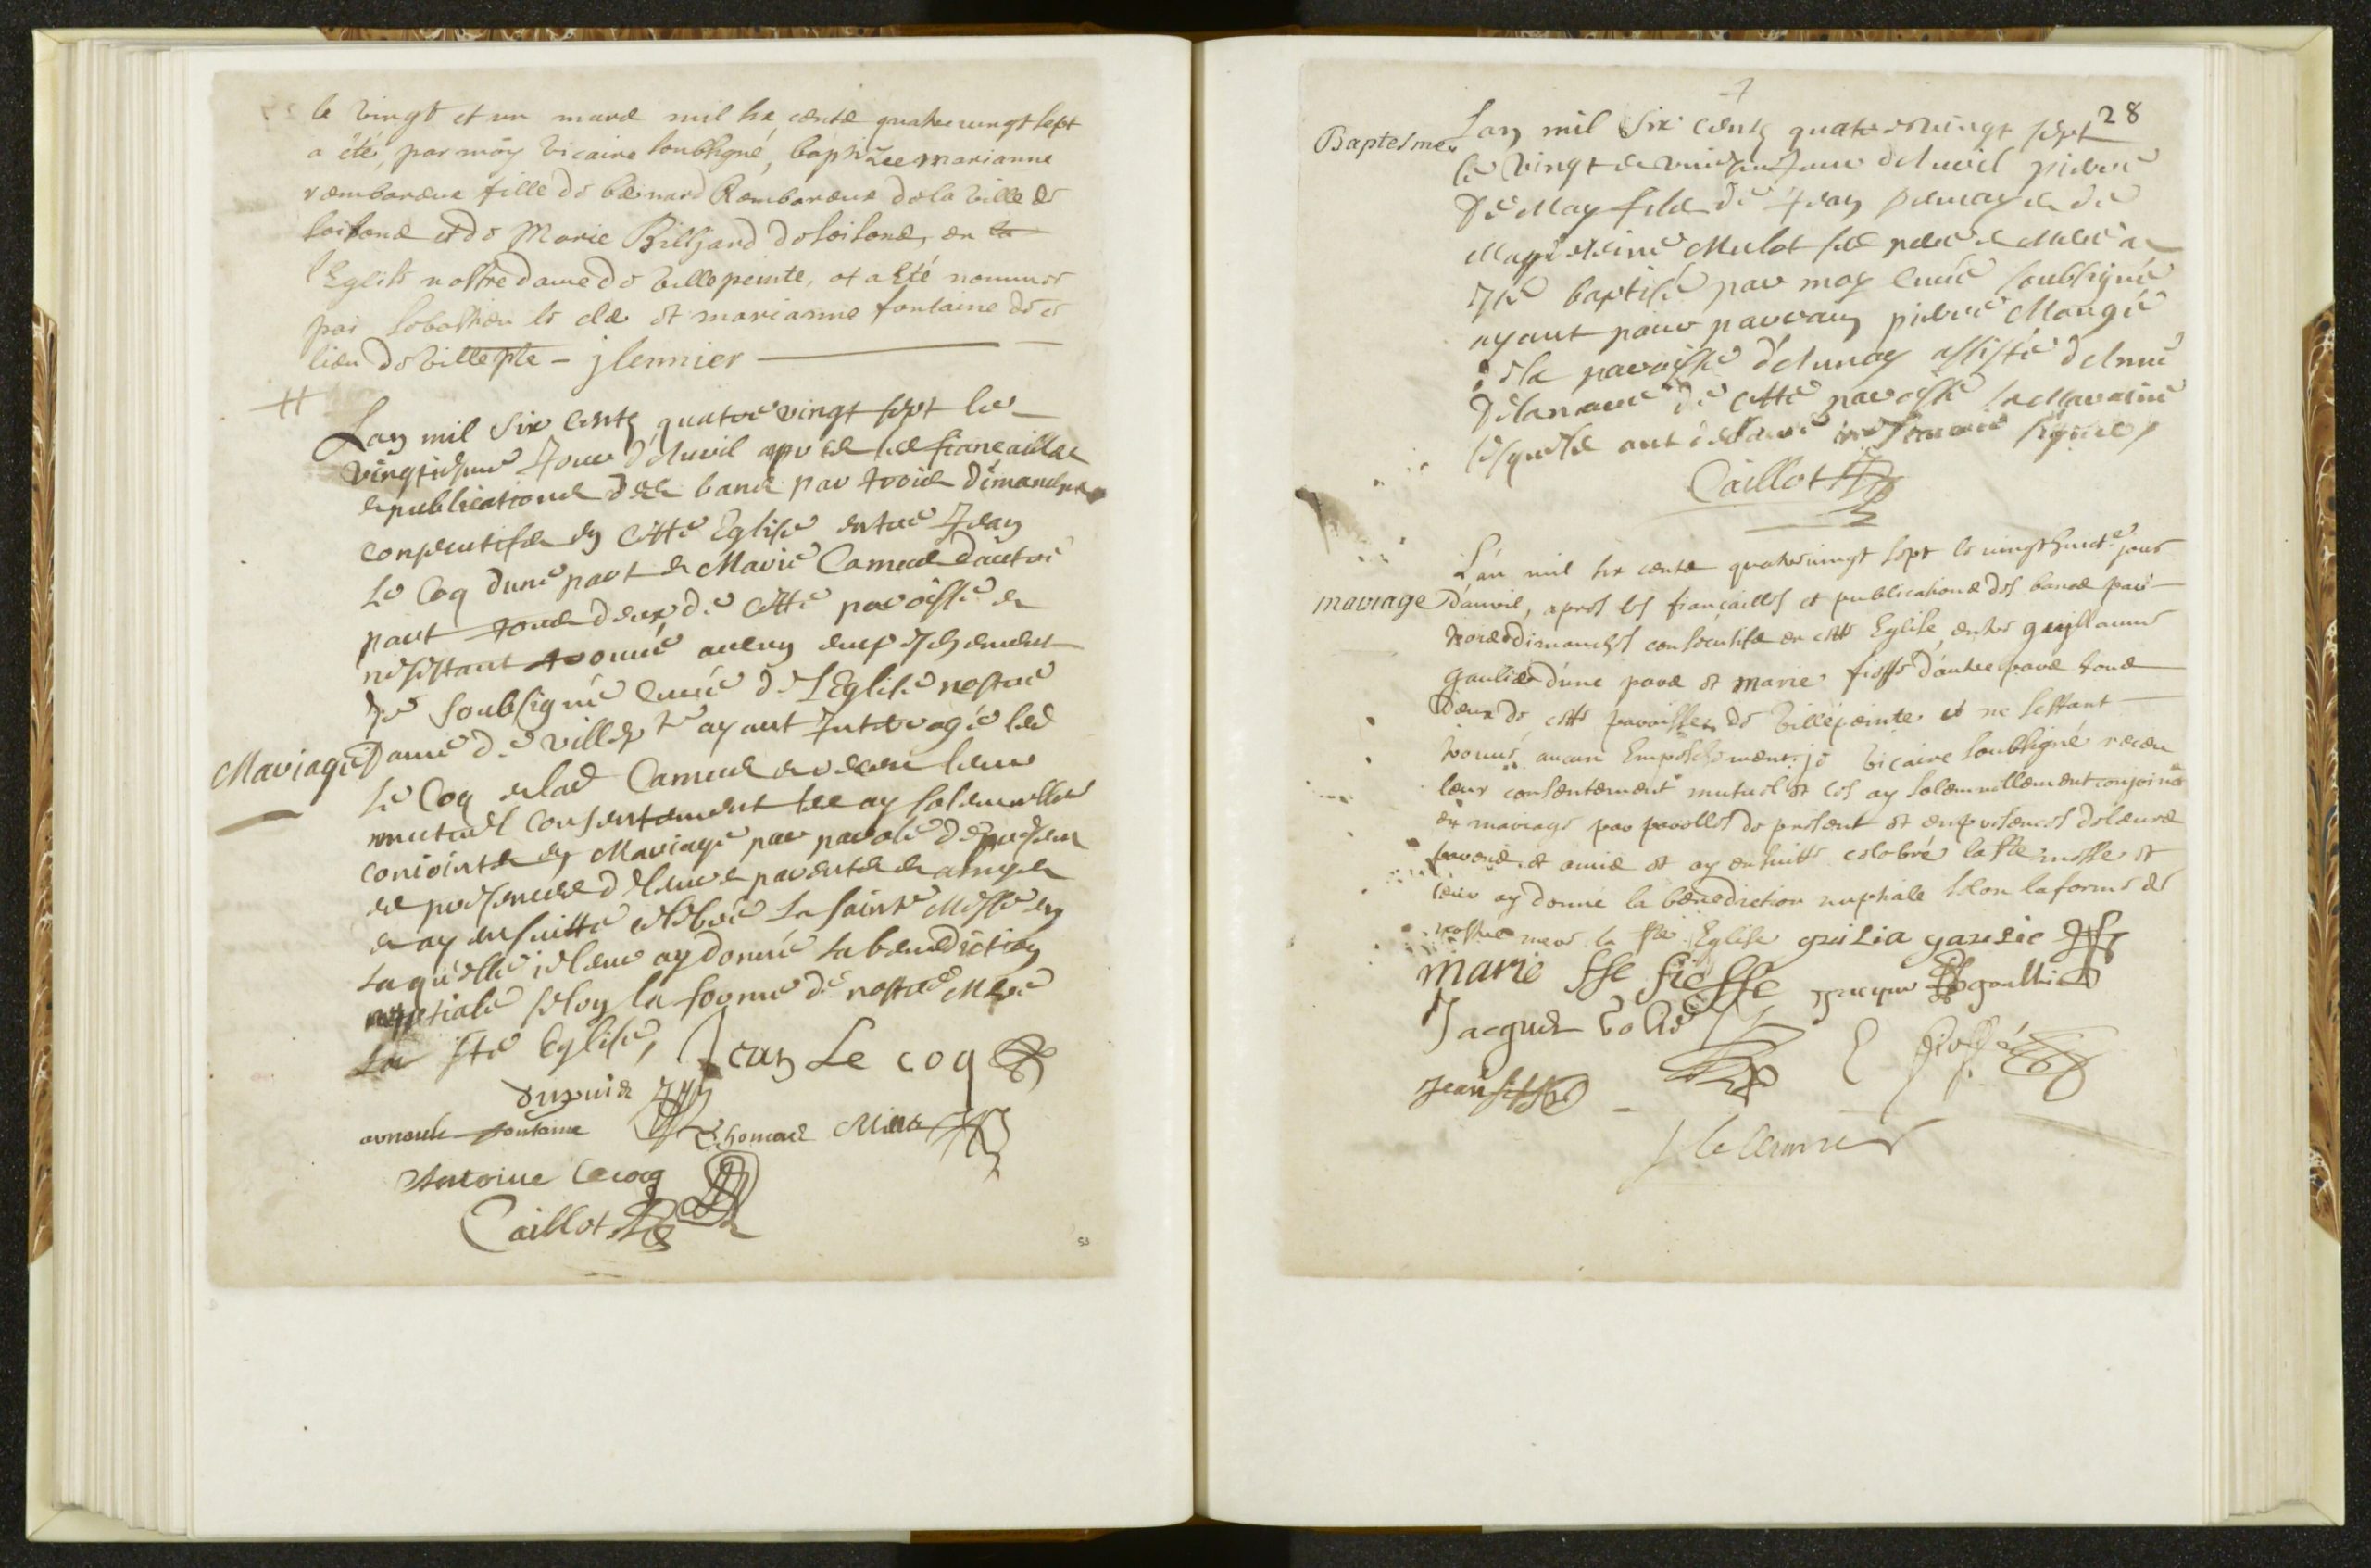 le vingt et un mars mil six cents quatre vingt sept
a été, par moy vicaire soubsigné, baptizee marianne
rembareux fille de bernard Rembareux de la ville de
soissons et de Marie Billiard de soissons, en la
l'Eglise nostre dame de villepeinte, et a été nommee
par sebastien le clé et marianne fontaine de ce
lieu de villepte - j lennier
Lan mil six cents quatre vingt sept le
vingtiesme Jour d'Avril apres les fiancailles
et publications des bans par trois dimanches
consecutifs en cette Eglise entre Jean
Le Coq dune part et Marie Camus d'autre
part tous deux de cette paroisse et
ne s'estant trouvé aucun empeschement
Je soubsigné Curé de l'Eglise nostre
Mariage
Dame de villepte ayant Interrogé led
Le Coq et lad Camus et receu leur
mutuel consentement les ay solemnellement
conjoints en Mariage par parole de present
en presence de leurs parents et amys
et ay ensuitte celebré la sainte Messe en
laquelle je leur ay donné la benediction
nuptiale selon la forme de nostre Mere
la Ste Eglise, Jean Le coq
dupuis
arnoult fontaine Thomas
Antoine Lecoq
Caillot
28
Baptesme
Lan mil six cents quatre vingt sept
le vingt et uniesme Jour d'Avril pierre
De May fils de Jean Demay et de
Magdeleine Mulot ses pere et Mere a
esté baptisé par moy Curé soubsigné
ayant pour parrain pierre Mangé
de la paroisse d'Aunay assisté d'Anne
Delanoue de cette paroisse sa Maraine
lesquels ont declaré ne scavoir signer
Caillot
L'an mil six cents quatrevingt sept le vingthuicte jour
mariage
d'avril, apres les fiancailles et publications des bans par
trois dimanches consecutifs en cette Eglise, entre guillaume
gaultier d'une part et marie fieffé d'autre part tous
deux de cette paroisse de villepeinte et ne s'estant
trouvé aucun Empeschement, je vicaire soubsigné receu
leur consentement mutuel et les ay solemnellement conjoinct
en mariage par parolles de present et en presences de leurs
parens et amis et ay ensuitte celebré la Ste messe et
leur ay donné la benediction nuptiale selon la forme de
nostre mere la Ste Eglise
marie fieffe
Jacques gaultier
Jacques
fieffé
Jean
J lennier